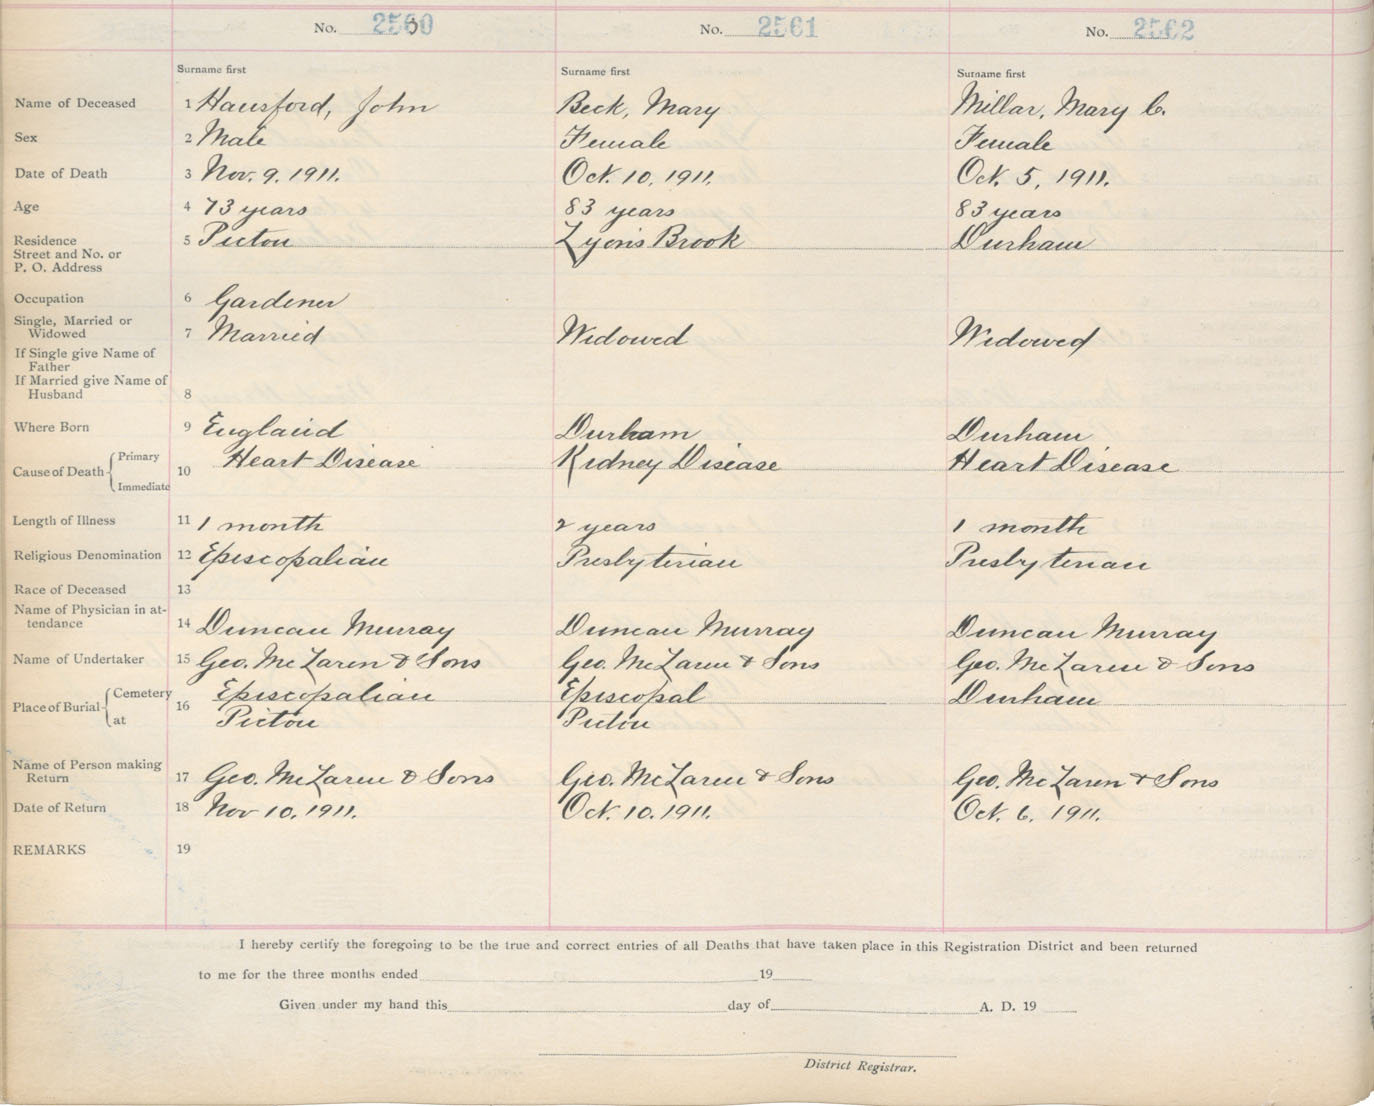 No. 2560 No. 2561 No. 2562
Surname first Surname first Surname first
Name of Deceased 1 Hansford, John Beck, Mary Millar, Mary C.
Sex 2 Male Female Female
Date of Death 3 Nov. 9. 1911. Oct. 10, 1911. Oct. 5, 1911.
Age 4 73 years 83 years 83 years
Residence 5 Pictou Lyons Brook Durham
Street and No. or
P. O. Address
Occupation 6 Gardener
Single, Married or
Widowed 7 Married Widowed Widowed
If Single give Name of
Father
If Married give Name of
Husband 8
Where Born 9 England Durham Durham
Cause of Death Primary Heart Disease Kidney Disease Heart Disease
10
Immediate
Length of Illness 11 1 month 2 years 1 month
Religious Denomination 12 Episcopalian Presbyterian Presbyterian
Race of Deceased 13
Name of Physician in at-
tendance 14 Duncan Murray Duncan Murray Duncan Murray
Name of Undertaker 15 Geo. McLaren & Sons Geo. McLaren & Sons Geo. McLaren & Sons
Place of Burial Cemetery 16 Episcopalian Episcopal Durham
at Pictou Pictou
Name of Person making
Return 17 Geo. McLaren & Sons Geo. McLaren & Sons Geo. McLaren & Sons
Date of Return 18 Nov 10. 1911. Oct. 10. 1911. Oct. 6, 1911.
REMARKS 19
I hereby certify the foregoing to be the true and correct entries of all Deaths that have taken place in this Registration District and been returned
to me for the three months ended 19
Given under my hand this day of A. D. 19
District Registrar.